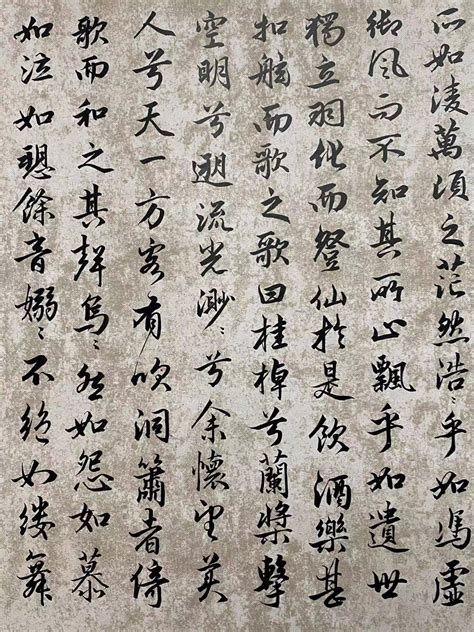 所如凌萬頃之茫然浩〻乎如馮虛
御風而不知其所止飄乎如遺世
獨立羽化而登仙於是飲酒樂甚
扣舷而歌之歌曰桂棹兮蘭槳擊
空明兮遡流光渺〻兮余懷望美
人兮天一方客有吹洞簫者倚
歌而和之其聲烏〻然如怨如慕
如泣如愬餘音嫋〻不絕如縷舞